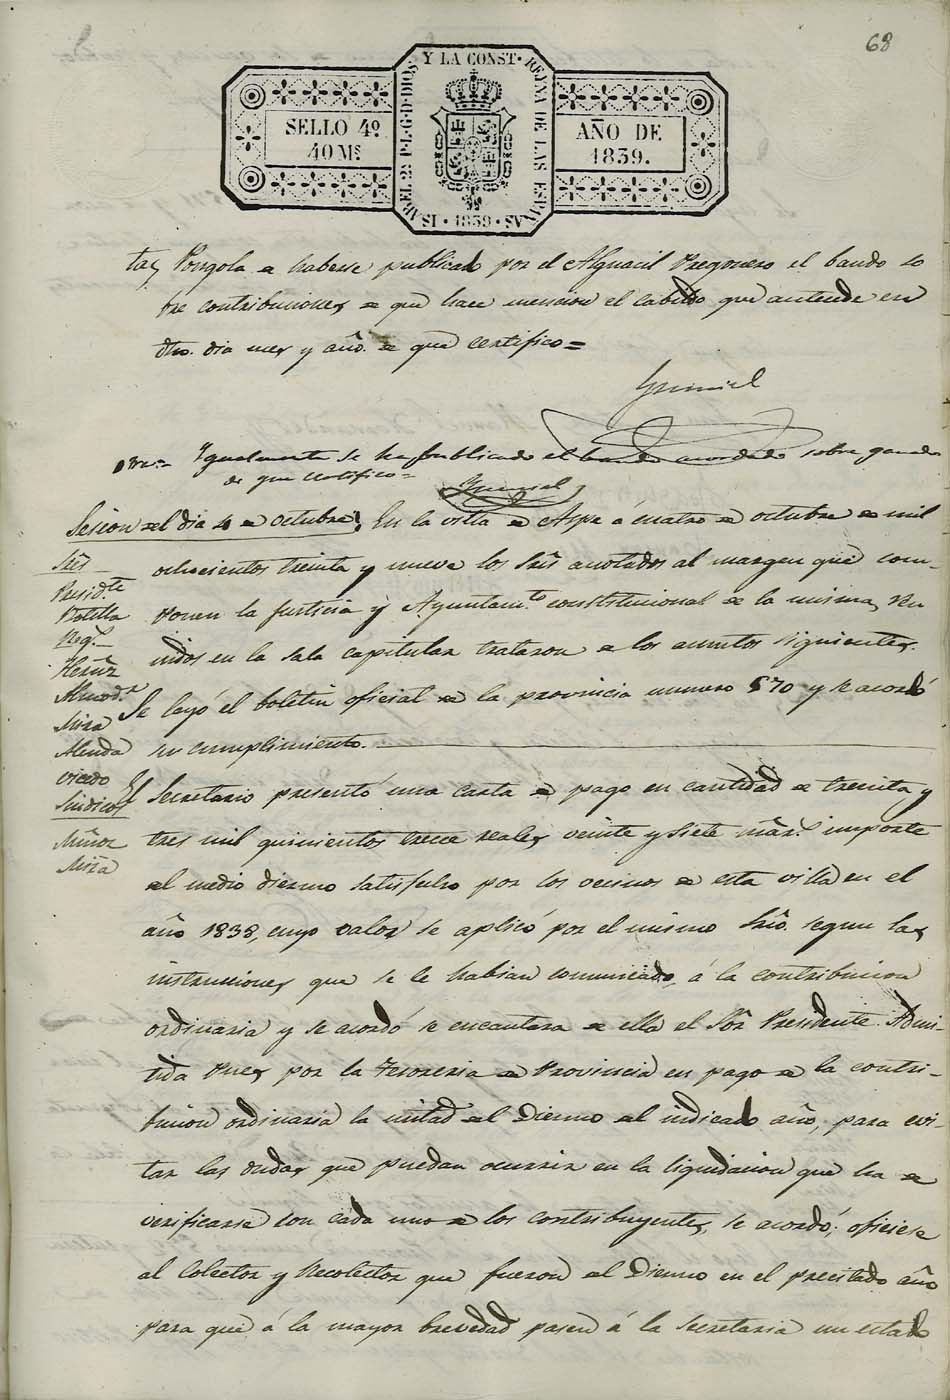 68
Y LA CONST. REYNA DE LAS ESPAÑAS · 1839 · ISABEL 2ª P. L. G. D. DIOS
SELLO 4º
40 Ms
AÑO DE
1839.
ta, Pongola de haberse publicado por el Alguacil Pregonero el bando so
bre contribuciones de que hace mencion el cabildo que antecede en
dho. dia mes y año. de que certifico=
otra= Ygualmente se ha publicado el bando acordado sobre ganado
de que certifico=
Sesion del dia 4 de octubre. En la villa de Aspe á cuatro de octubre de mil
Sres
ochocientos treinta y nueve los Sres anotados al margen que com-
Presidte
Botella
ponen la Justicia y Ayuntamto constitucional de la misma, reu
Regs
nidos en la sala capitular trataron de los asuntos siguientes.
Almodr
Se leyó el boletin oficial de la provincia numero 570 y se acordó
Mira
su cumplimiento.
oicedo
El Secretario presentó una carta de pago en cantidad de treinta y
Sindicos
tres mil quinientos trece reales veinte y siete mârs importe
Muñoz
Mira
del medio diezmo satisfecho por los vecinos de esta villa en el
año 1838, cuyo valor se aplicó por el mismo Srio. segun las
instrucciones que se le habian comunicado, á la contribucion
ordinaria y se acordó se encantara de ella el Sor Presidente. Admi-
tida pues por la Tesoreria de Provincia en pago de la contri-
bucion ordinaria la mitad del Diezmo del indicado año, para evi-
tar las dudas que puedan ocurrir en la liquidacion que ha de
verificarse con cada uno de los contribuyentes, se acordó; oficiese
al Colector y Recolector que fueron del Diezmo en el precitado año
para que á la mayor brevedad pasen á la Secretaria un estado